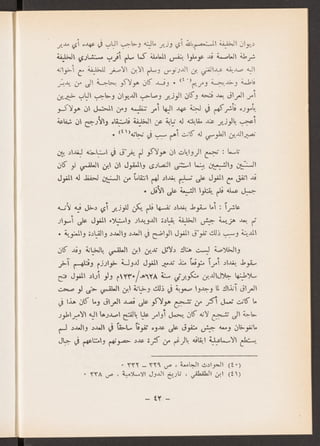 ديوان الخليفة المستعصم بالله أي وزير ماليته وحاجب الباب في عهده أي مدير
شرطة العاصمة قد عوملوا بنفس المعاملة كما سلم أقرب مستشاري الخليفة
اليه صديقه عبدالغني بن الدرنوس وسلم الابن الاصغر للخليفة مع أخواته
فاطمة وخديجة ومريم(٤٠) • وقد كان هولاكو بحاجة الى من يدبّر
أمر العراق بعد فتحه وكان الوزير وصاحب الديوان وحاجب الباب خبيرين
بأموره فأشركهم في لجنة عهد اليها أمر تنظيمه ومن المحتمل ان هولاكو
أعجب بالوزير عند مقابلته له نيابة عن الخليفة فاستبقاه والارجح ان شفاعة
نصيرالدين الطوسي له كانت أهم سبب في نجاته(٤١) •
تاسعا : تجمع الروايات ان هولاكو لم يفرق في استباحته لبغداد بين
السنّيين والشيعيين بينما استثنى النصارى والمعقول ان ابن العلقمي لو كان
قد اتفق مع المغول على تسليم بغداد لهم انتقاماً من السنيين لحفظ له المغول
جميل عمله فلم يقتلوا الشيعة على الأقل •
عاشراً : أما سقوط بغداد نفسها فلم يكن للوزير أي دخل فيه لأنه
تم بعد هزيمة جيش الخليفة بقيادة الدويدار واستيلاء المغول على أسوار
المدينة وسبب ذلك تفوق المغول الواضح في العدد والعدد والقيادة والمعنوية •
والخلاصة ليست هناك دلائل تدين ابن العلقمي بالخيانة وقد كان
سقوط بغداد أمراً متوقعاً منذ تدمير المغول لدولة خوارزم وقتلهم آخر
سلاطينها جلال‌الدين منكوبرتي سنة ٦٢٨هـ/١٢٣٠م ولو أراد المغول فتح
العراق آنذاك لما وجدوا صعوبة في ذلك وخيانة ابن العلقمي حتى لو صحت
ما كانت تعمل أكثر من تشجيع هولاكو على قصد العراق وما كان هذا في
حاجة الى تشجيع لأنه كان يحمل أوامر عليا بالفتح أصدرها اليه الامبراطور
مانغوخان ومعه جيش متفوق على عدوه تفوقاً ساحقاً في العدد والعدد لم
يستطع الاسماعيلية ايقافه بالرغم من كثرة عدد حصونهم وامتناعهم في جبال
(٤٠) الحوادث الجامعة ، ص ٣٢٩ – ٣٣٢ •
(٤١) ابن الطقطقي ، تاريخ الدول الاسلامية ، ص ٣٣٨ •
– ٤٢ –